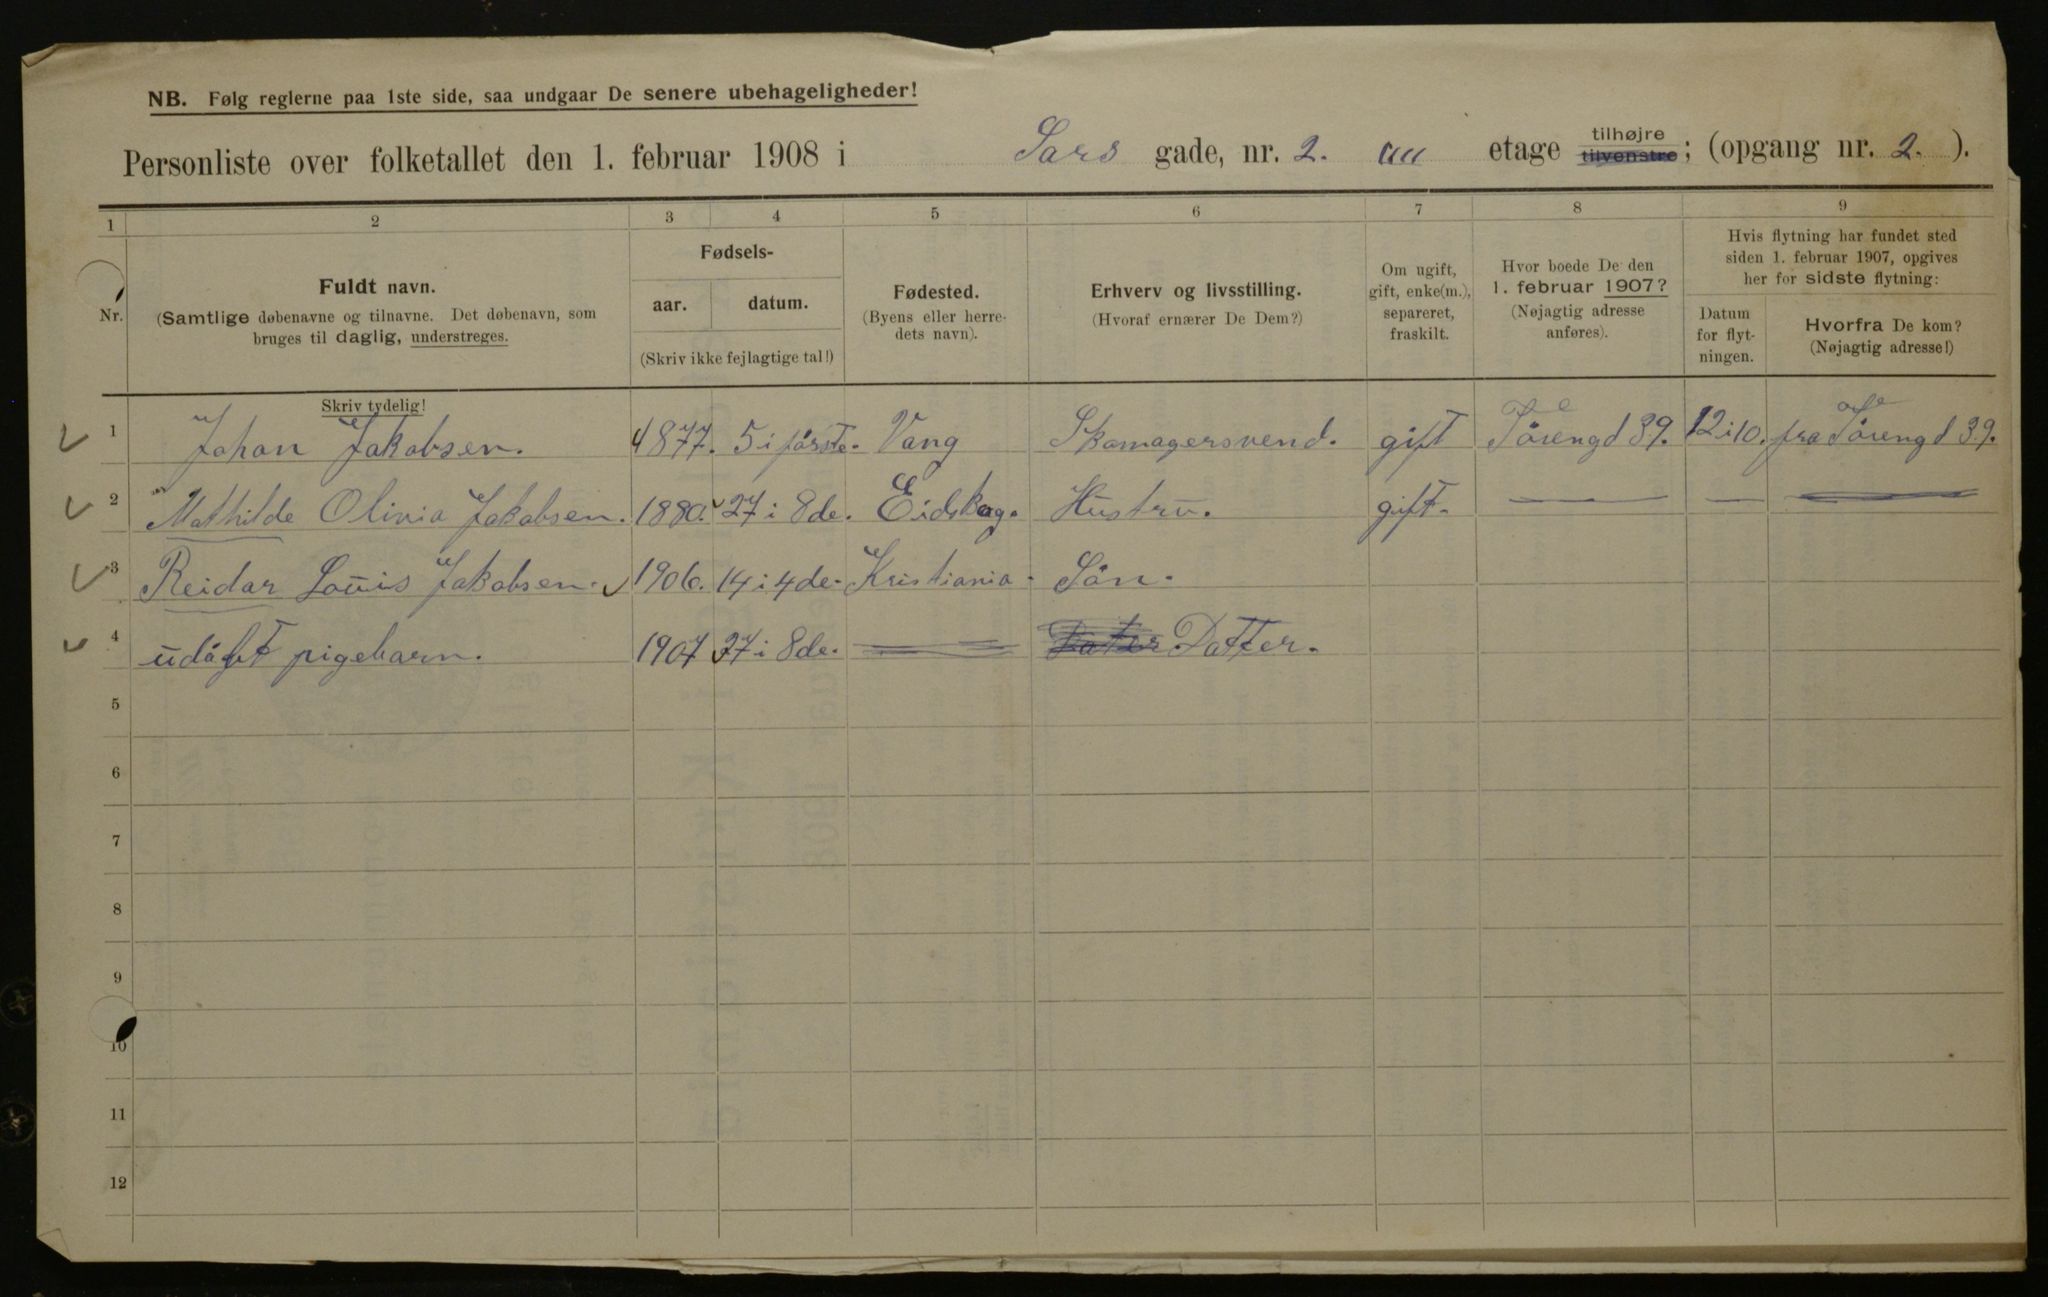 NB. Følg reglerne paa 1ste side, saa undgaar De senere ubehageligheder!
Personliste over folketallet den 1. februar 1908 i Sars gade, nr. 2. etage tilhøjre tilvenstre; (opgang nr. 2. ).
1 2 3 4 5 6 7 8 9
Nr.
Fuldt navn.
(Samtlige døbenavne og tilnavne. Det døbenavn, som
bruges til daglig, understreges.
Skriv tydelig!
Fødsels-
aar. datum.
(Skriv ikke fejlagtige tal!)
Fødested.
(Byens eller herre-
dets navn).
Erhverv og livsstilling.
(Hvoraf ernærer De Dem?)
Om ugift,
gift, enke(m.),
separeret,
fraskilt.
Hvor boede De den
1. februar 1907?
(Nøjagtig adresse
anføres).
Hvis flytning har fundet sted
siden 1. februar 1907, opgives
her for sidste flytning:
Datum
for flyt-
ningen.
Hvorfra De kom?
(Nøjagtig adresse!)
1 Johan Jakobsen. 1877. 5 i første. Vang Skomagersvend. gift 12 i 10. fra
2 Mathilde Olivia Jakobsen. 1880. 27 i 8de. Eidskog. Hustru. gift.
3 Reidar Louis Jakobsen. 1906. 14 i 4de. Kristiania. Sön.
4 udöbt pigebarn. 1907 27 i 8de. Datter.
5
6
7
8
9
10
11
12